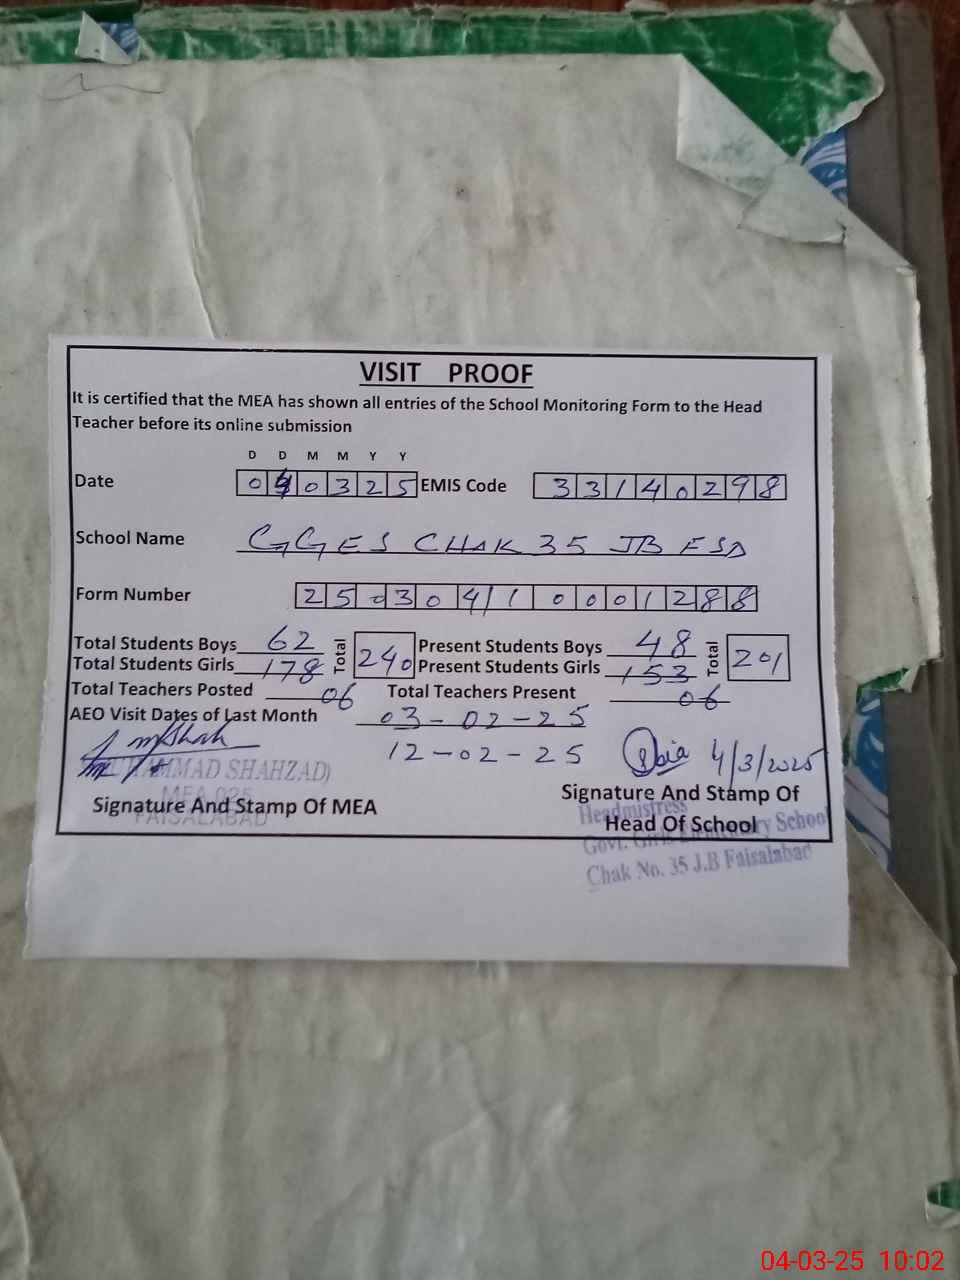 VISIT PROOF
It is certified that the MEA has shown all entries of the School Monitoring Form to the Head
Teacher before its online submission
D D M M Y Y
Date 040325 EMIS Code 33140298
School Name GGES CHAK 35 JB FSD
Form Number 250304/10001288
Total Students Boys 62 Total 240 Present Students Boys 48 Total 201
Total Students Girls 178 Present Students Girls 153
Total Teachers Posted 06 Total Teachers Present 06
AEO Visit Dates of Last Month 03-02-25
12-02-25 4/3/2025
MUHAMMAD SHAHZAD)
MEA 025
FAISALABAD
Signature And Stamp Of MEA
Signature And Stamp Of
Head Of School
Headmistress
Govt. Girls Elementary School
Chak No. 35 J.B Faisalabad
04-03-25 10:02